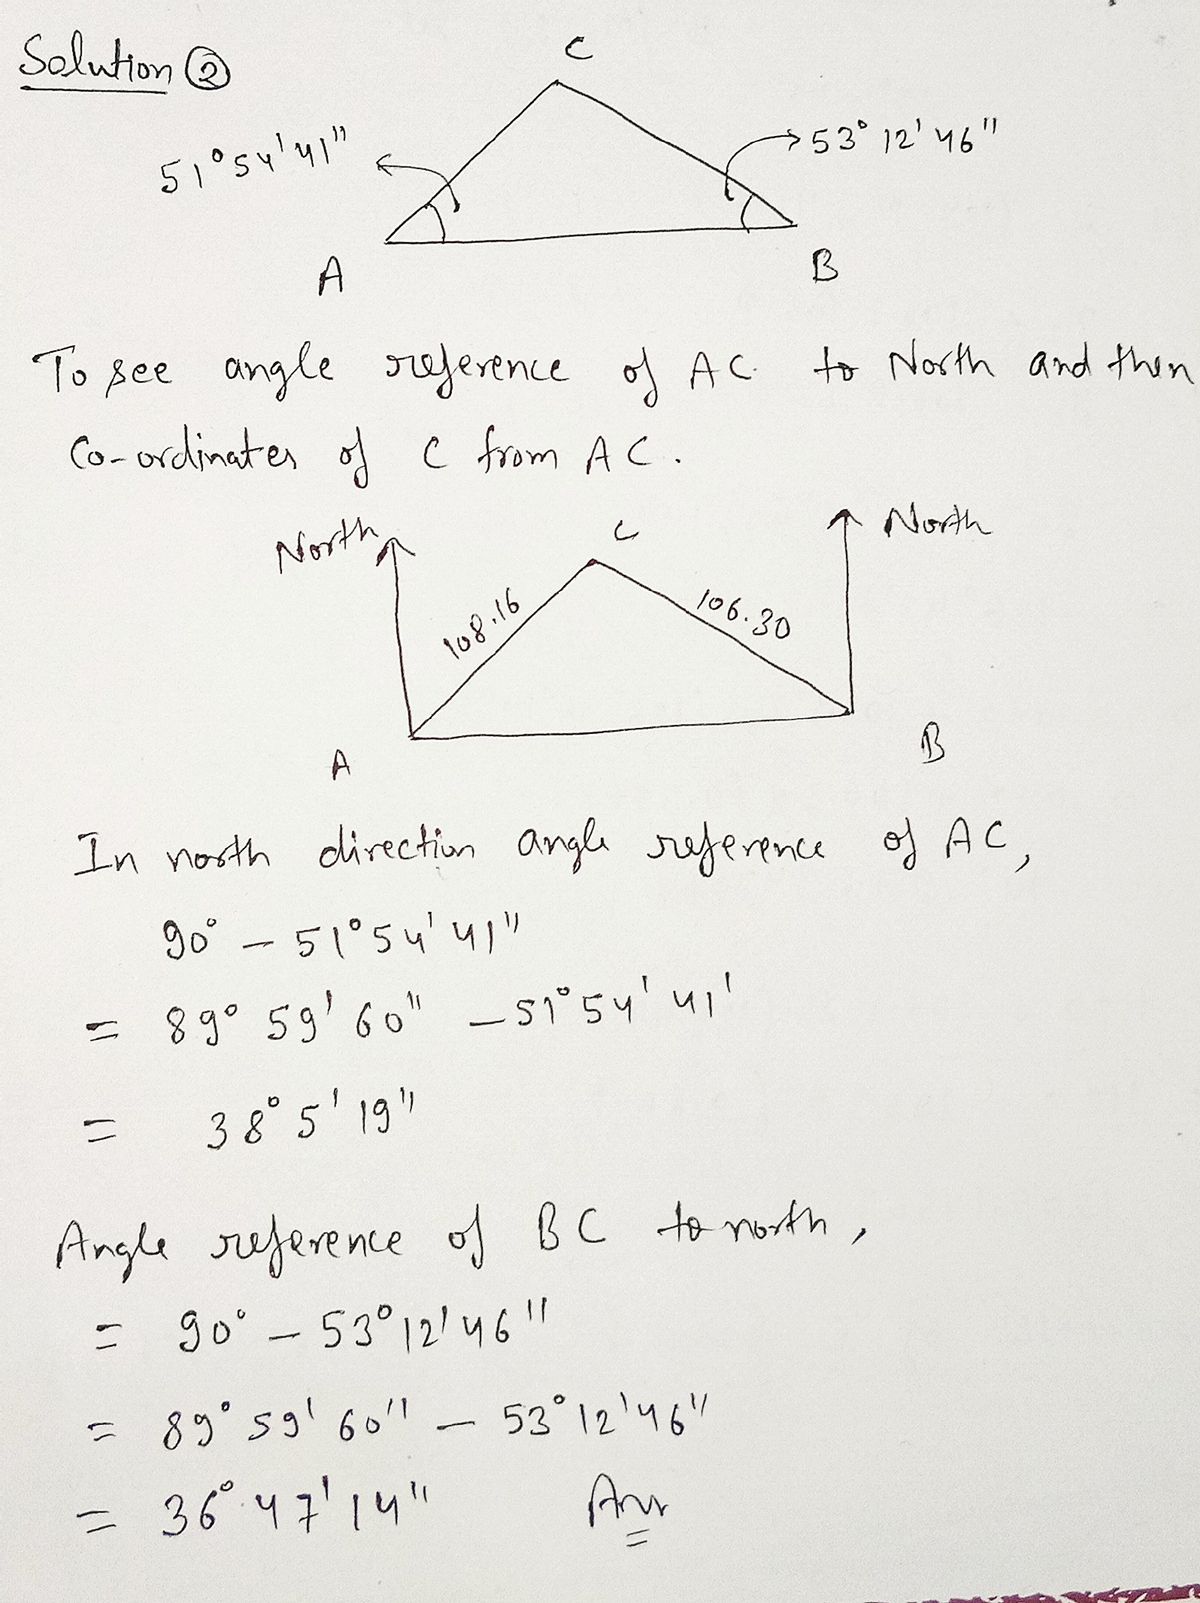 Solution ②
C
51°54'41"
53°12'46"
A
B
To see angle reference of AC to North and then
Co-ordinates of C from AC.
North
C
North
108.16
106.30
A
B
In north direction angle reference of AC,
90° - 51°54'41"
= 89° 59' 60" - 51°54' 41'
= 38° 5' 19"
Angle reference of BC to north,
= 90° - 53°12'46"
= 89° 59' 60" - 53°12'46"
= 36° 47' 14" Ans